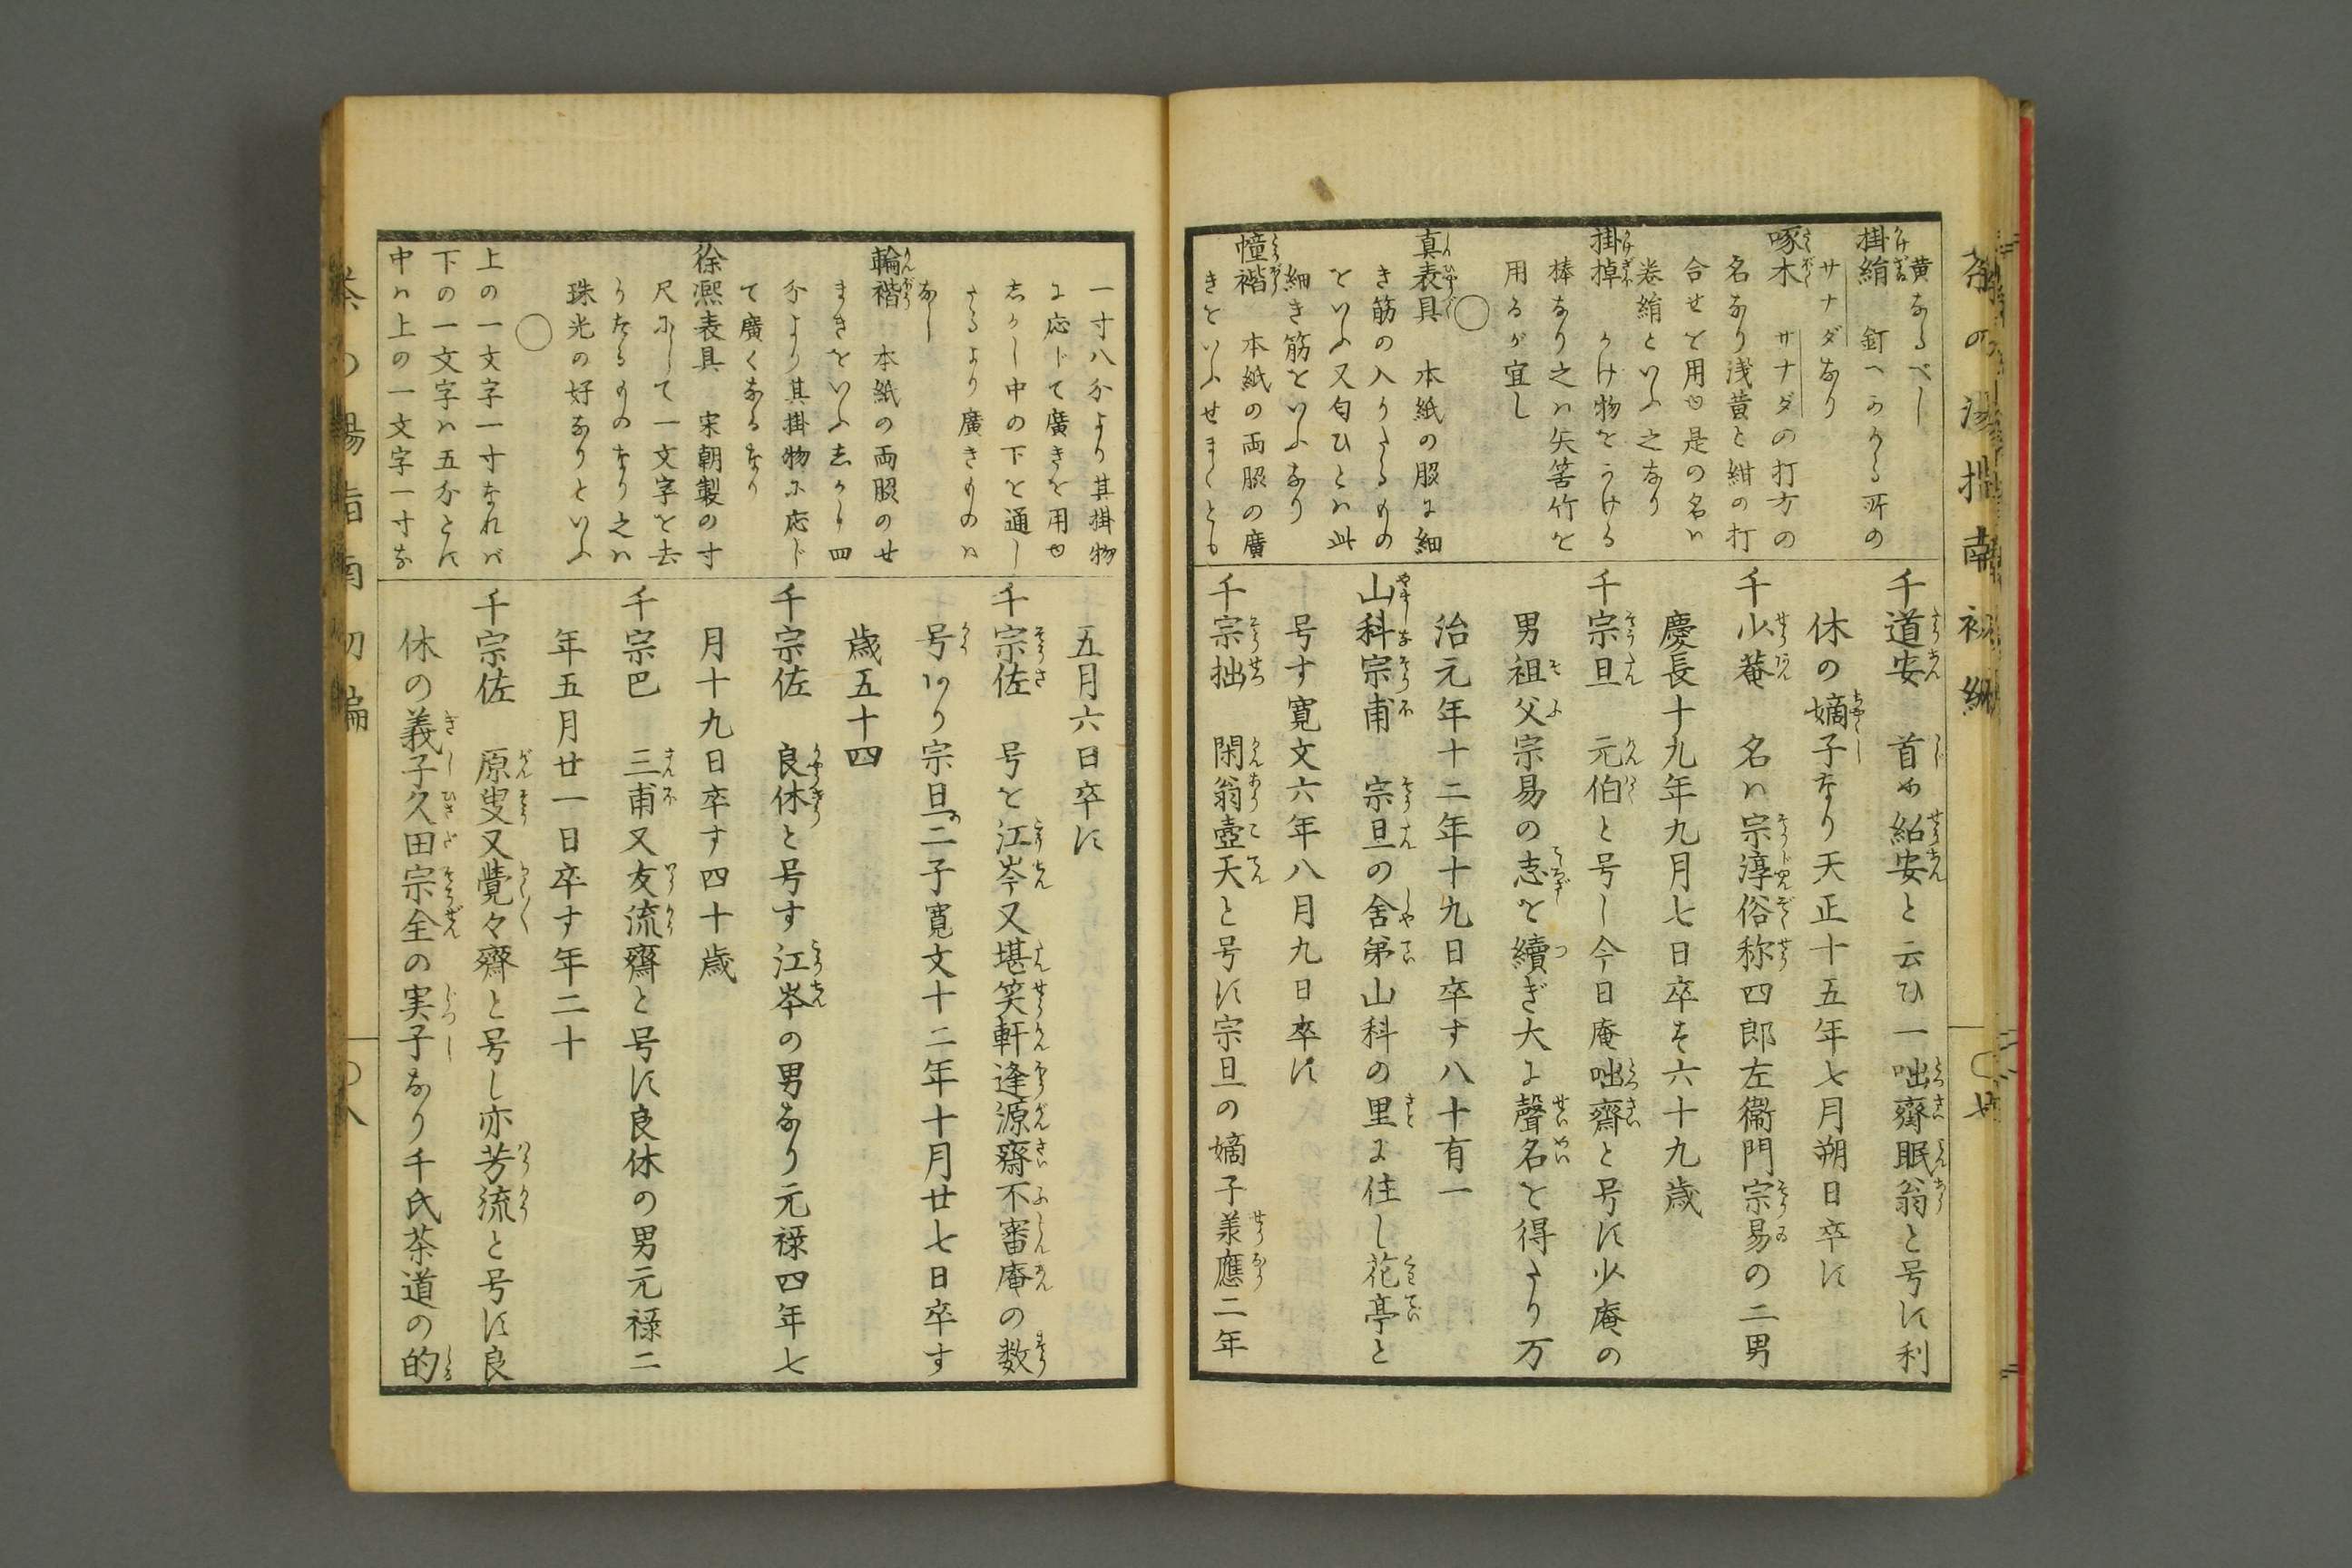 茶の湯指南初編
黄なるべし
掛絹　釘へかゝる所の
サナダなり
啄木　サナダの打方の
名なり浅黄と紺の打
合せを用ゆ是の名ハ
巻絹といふ之なり
掛棹　かけ物をかける
棒なり之ハ矢筈竹を
用るが宜し
○
真表具　本紙の服に細
き筋の入りたるもの
をいふ又匂ひとハ此
細き筋をいふなり
幢褙　本紙の両服の廣
きをいふせまくとも
千道安　首め紹安と云ひ一咄齋眠翁と号す利
休の嫡子なり天正十五年七月朔日卒す
千少菴　名ハ宗淳俗称四郎左衞門宗易の二男
慶長十九年九月七日卒す六十九歳
千宗旦　元伯と号し今日庵咄齋と号す少庵の
男祖父宗易の志を續ぎ大に聲名を得たり万
治元年十二年十九日卒す八十有一
山科宗甫　宗旦の舍弟山科の里に住し花亭と
号す寛文六年八月九日卒す
千宗拙　閑翁壺天と号す宗旦の嫡子羕應二年
一寸八分より其掛物
に応じて廣きを用ゆ
志かし中の下を通し
たるより廣きものハ
なし
輪褙　本紙の両服のせ
まきをいふ志かし四
分より其掛物に応じ
て廣くなるなり
徐凞表具　宋朝製の寸
尺にして一文字を去
りたるものなり之ハ
珠光の好なりといふ
○
上の一文字一寸なれバ
下の一文字ハ五分とす
中ハ上の一文字一寸な
五月六日卒す
千宗佐　号を江岑又堪笑軒逢源齋不審庵の数
号あり宗旦の二子寛文十二年十月廿七日卒す
歳五十四
千宗佐　良休と号す江岑の男なり元禄四年七
月十九日卒す四十歳
千宗巴　三甫又友流齋と号す良休の男元禄二
年五月廿一日卒す年二十
千宗佐　原叟又覺々齋と号し亦芳流と号す良
休の義子久田宗全の実子なり千氏茶道の的
茶の湯指南初編
○八